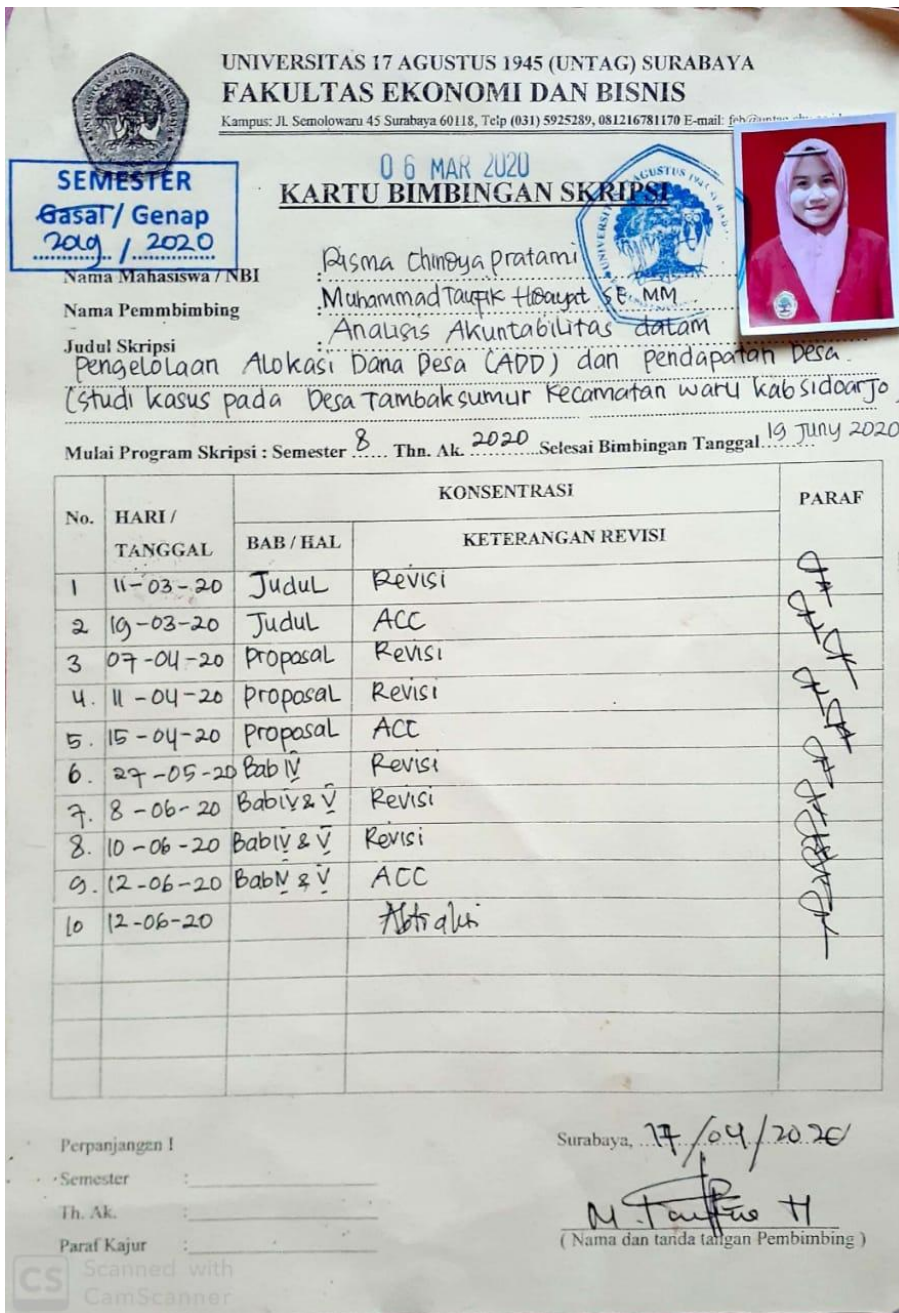 UNIVERSITAS 17 AGUSTUS 1945 (UNTAG) SURABAYA
FAKULTAS EKONOMI DAN BISNIS
Kampus: Jl. Semolowaru 45 Surabaya 60118, Telp (031) 5925289, 081216781170 E-mail:
06 MAR 2020
KARTU BIMBINGAN SKRIPSI
SEMESTER
Gasal / Genap
2019 / 2020
Nama Mahasiswa / NBI : Risma Chinoya pratami
Nama Pemmbimbing : Muhammad Taufik Hidayat SE. MM
Judul Skripsi : Analisis Akuntabilitas dalam
Pengelolaan Alokasi Dana Desa (ADD) dan pendapatan Desa.
(studi kasus pada Desa Tambaksumur Kecamatan waru kab sidoarjo)
Mulai Program Skripsi : Semester 8 Thn. Ak. 2020 Selesai Bimbingan Tanggal 19 Juny 2020
No. HARI / TANGGAL KONSENTRASI PARAF
BAB / HAL KETERANGAN REVISI
1 11-03-20 Judul Revisi
2 19-03-20 Judul ACC
3 07-04-20 proposal Revisi
4. 11-04-20 proposal Revisi
5. 15-04-20 proposal ACC
6. 27-05-20 Bab IV Revisi
7. 8-06-20 Bab IV & V Revisi
8. 10-06-20 Bab IV & V Revisi
9. 12-06-20 Bab IV & V ACC
10 12-06-20
Perpanjangan I
Semester :
Th. Ak. :
Paraf Kajur :
Surabaya, 17/04/2020
M. Taufiq H
( Nama dan tanda tangan Pembimbing )
CS Scanned with
CamScanner